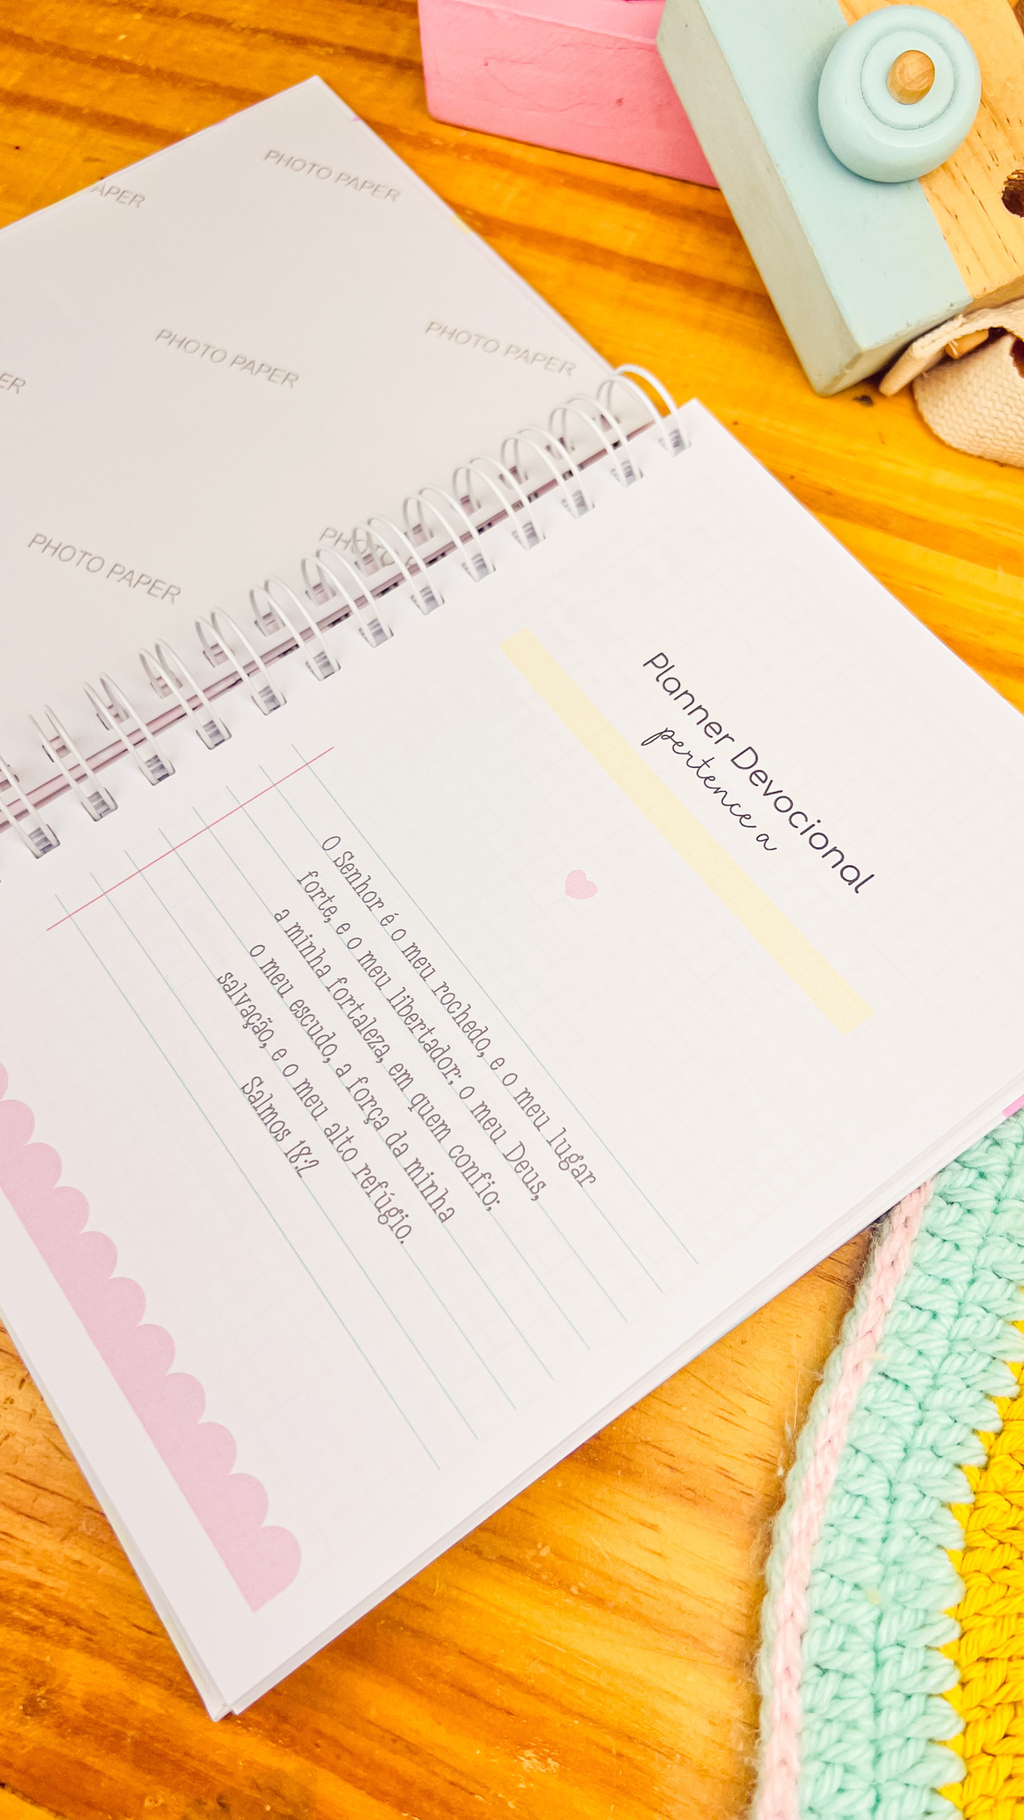 PHOTO PAPER
APER
PHOTO PAPER
PHOTO PAPER
ER
PHOTO PAPER
Planner Devocional
pertence a
O Senhor é o meu rochedo, e o meu lugar
forte, e o meu libertador; o meu Deus,
a minha fortaleza, em quem confio;
o meu escudo, a força da minha
salvação, e o meu alto refúgio.
Salmos 18:2